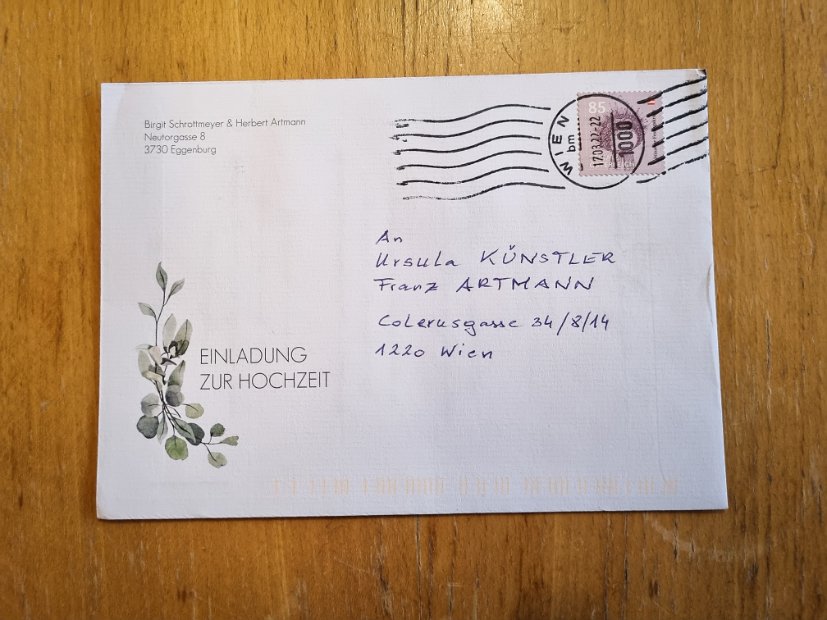 Birgit Schrottmeyer & Herbert Artmann
Neutorgasse 8
3730 Eggenburg
85
WIEN
bm
17.03.22-22
1000
An
Ursula KÜNSTLER
Franz ARTMANN
Colerusgasse 34/8/14
1220 Wien
EINLADUNG
ZUR HOCHZEIT